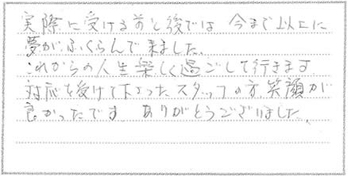 実際に受ける前と後では 今まで以上に
夢がふくらんで来ました。
これからの人生楽しく過ごして行きます
対応を受けて下さったスタッフの方笑顔が
良かったです ありがとうございました。